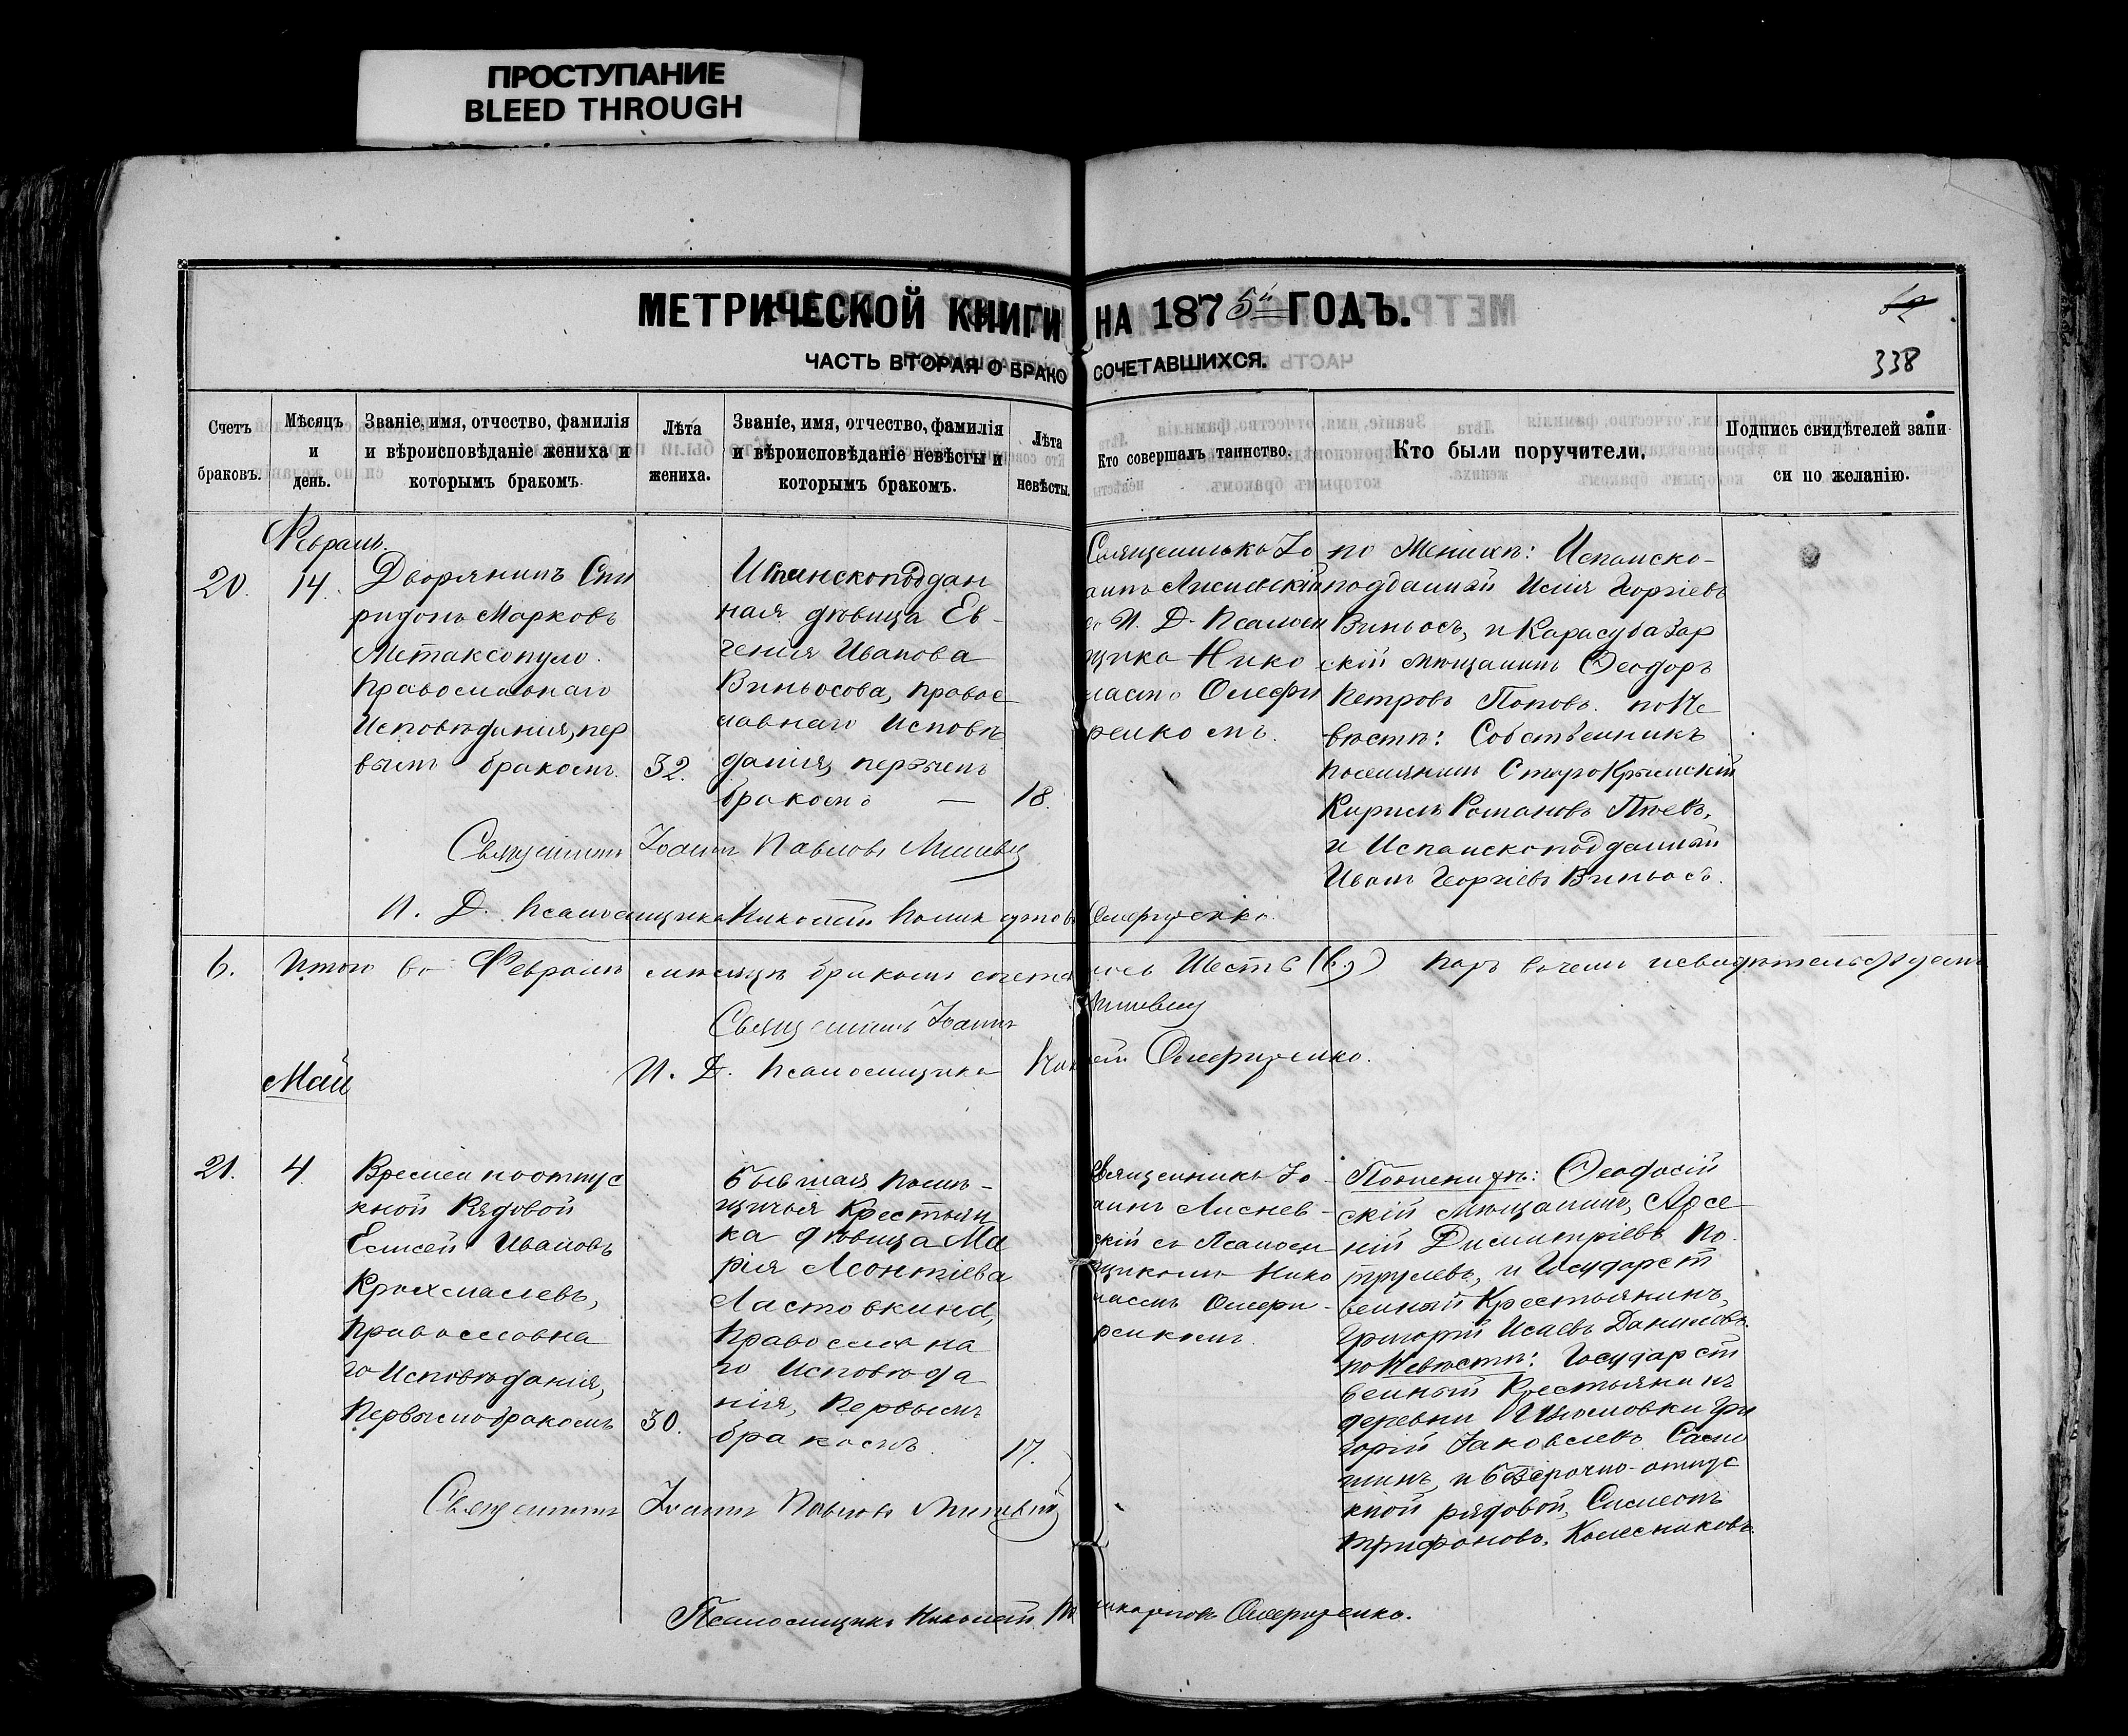 ПРОСТУПАНИЕ
BLEED THROUGH
МЕТРИЧЕСКОЙ КНИГИ НА 1875й ГОДЪ.
ЧАСТЬ ВТОРАЯ О БРАКОСОЧЕТАВШИХСЯ.
338
Счетъ
браковъ.
Мѣсяцъ
и
день.
Званіе, имя, отчество, фамилія
и вѣроисповѣданіе жениха и
которымъ бракомъ.
Лѣта
жениха.
Званіе, имя, отчество, фамилія
и вѣроисповѣданіе невѣсты и
которымъ бракомъ.
Лѣта
невѣсты.
Кто совершалъ таинство.
Кто были поручители.
Подпись свидѣтелей запи
си по желанію.
Февраль.
20.
14.
Дворянинъ Спи
ридонъ Марковъ
Метаксопуло.
Православнаго
Исповѣданія, пер
вымъ бракомъ.
32.
Испанскоподдан
ная дѣвица Ев-
генія Иванова
Виньосова, правос
лавнаго исповѣ
данія, первымъ
бракомъ —
18.
Священникъ Іо
аннъ Лисневскій
съ И. Д. Псаломщ
щика Нико
лаемъ Олефи
ренкомъ.
по Женихѣ: Испанско-
подданный Илія Георгіевъ
Виньосъ, и Карасубазар
скій мѣщанинъ Ѳеодоръ
Петровъ Поповъ. по Не
вѣстѣ: Собственникъ
поселянинъ Старокрымскій
Кирилъ Романовъ
и Испанскоподданный
Иванъ Георгіевъ Виньосъ.
Священникъ Іоаннъ Павловъ Лисневскій
И. Д. Псаломщика Николай Поликарповъ Олефиренко.
6. Итого въ Февралѣ мѣсяцѣ бракомъ сочеталось Шесть (6.) паръ въ чемъ и свидѣтельствуемъ
Священникъ Іоаннъ Лисневскій
И. Д. Псаломщика Николай Олефиренко.
Май
21.
4.
Временноотпус
кной Рядовой
Елисей Ивановъ
Крахмалевъ,
Православна
го Исповѣданія,
Первымъ бракомъ
30.
бывшая помѣ-
щичья Крестьян
ка дѣвица Ма
рія Леонтіева
Ластовкина,
Православна
го Исповѣда
нія, Первымъ
бракомъ.
17.
Священникъ Іо-
аннъ Лиснев-
скій съ Псалом
щикомъ Нико
лаемъ Олефи-
ренкомъ.
По женихѣ: Ѳеодосій
скій мѣщанинъ, Арсе
ній Димитріевъ
и Государст
венный Крестьянинъ,
Григорій Исаевъ Даниловъ.
по Невѣстѣ: Государст
венный Крестьянинъ
деревни Гри
горій Іаковлевъ
и безсрочно-отпус
кной рядовой, Симеонъ
Трифоновъ, Колесниковъ.
Священникъ Іоаннъ Павловъ Лисневскій
Псаломщикъ Николай Поликарповъ Олефиренко.